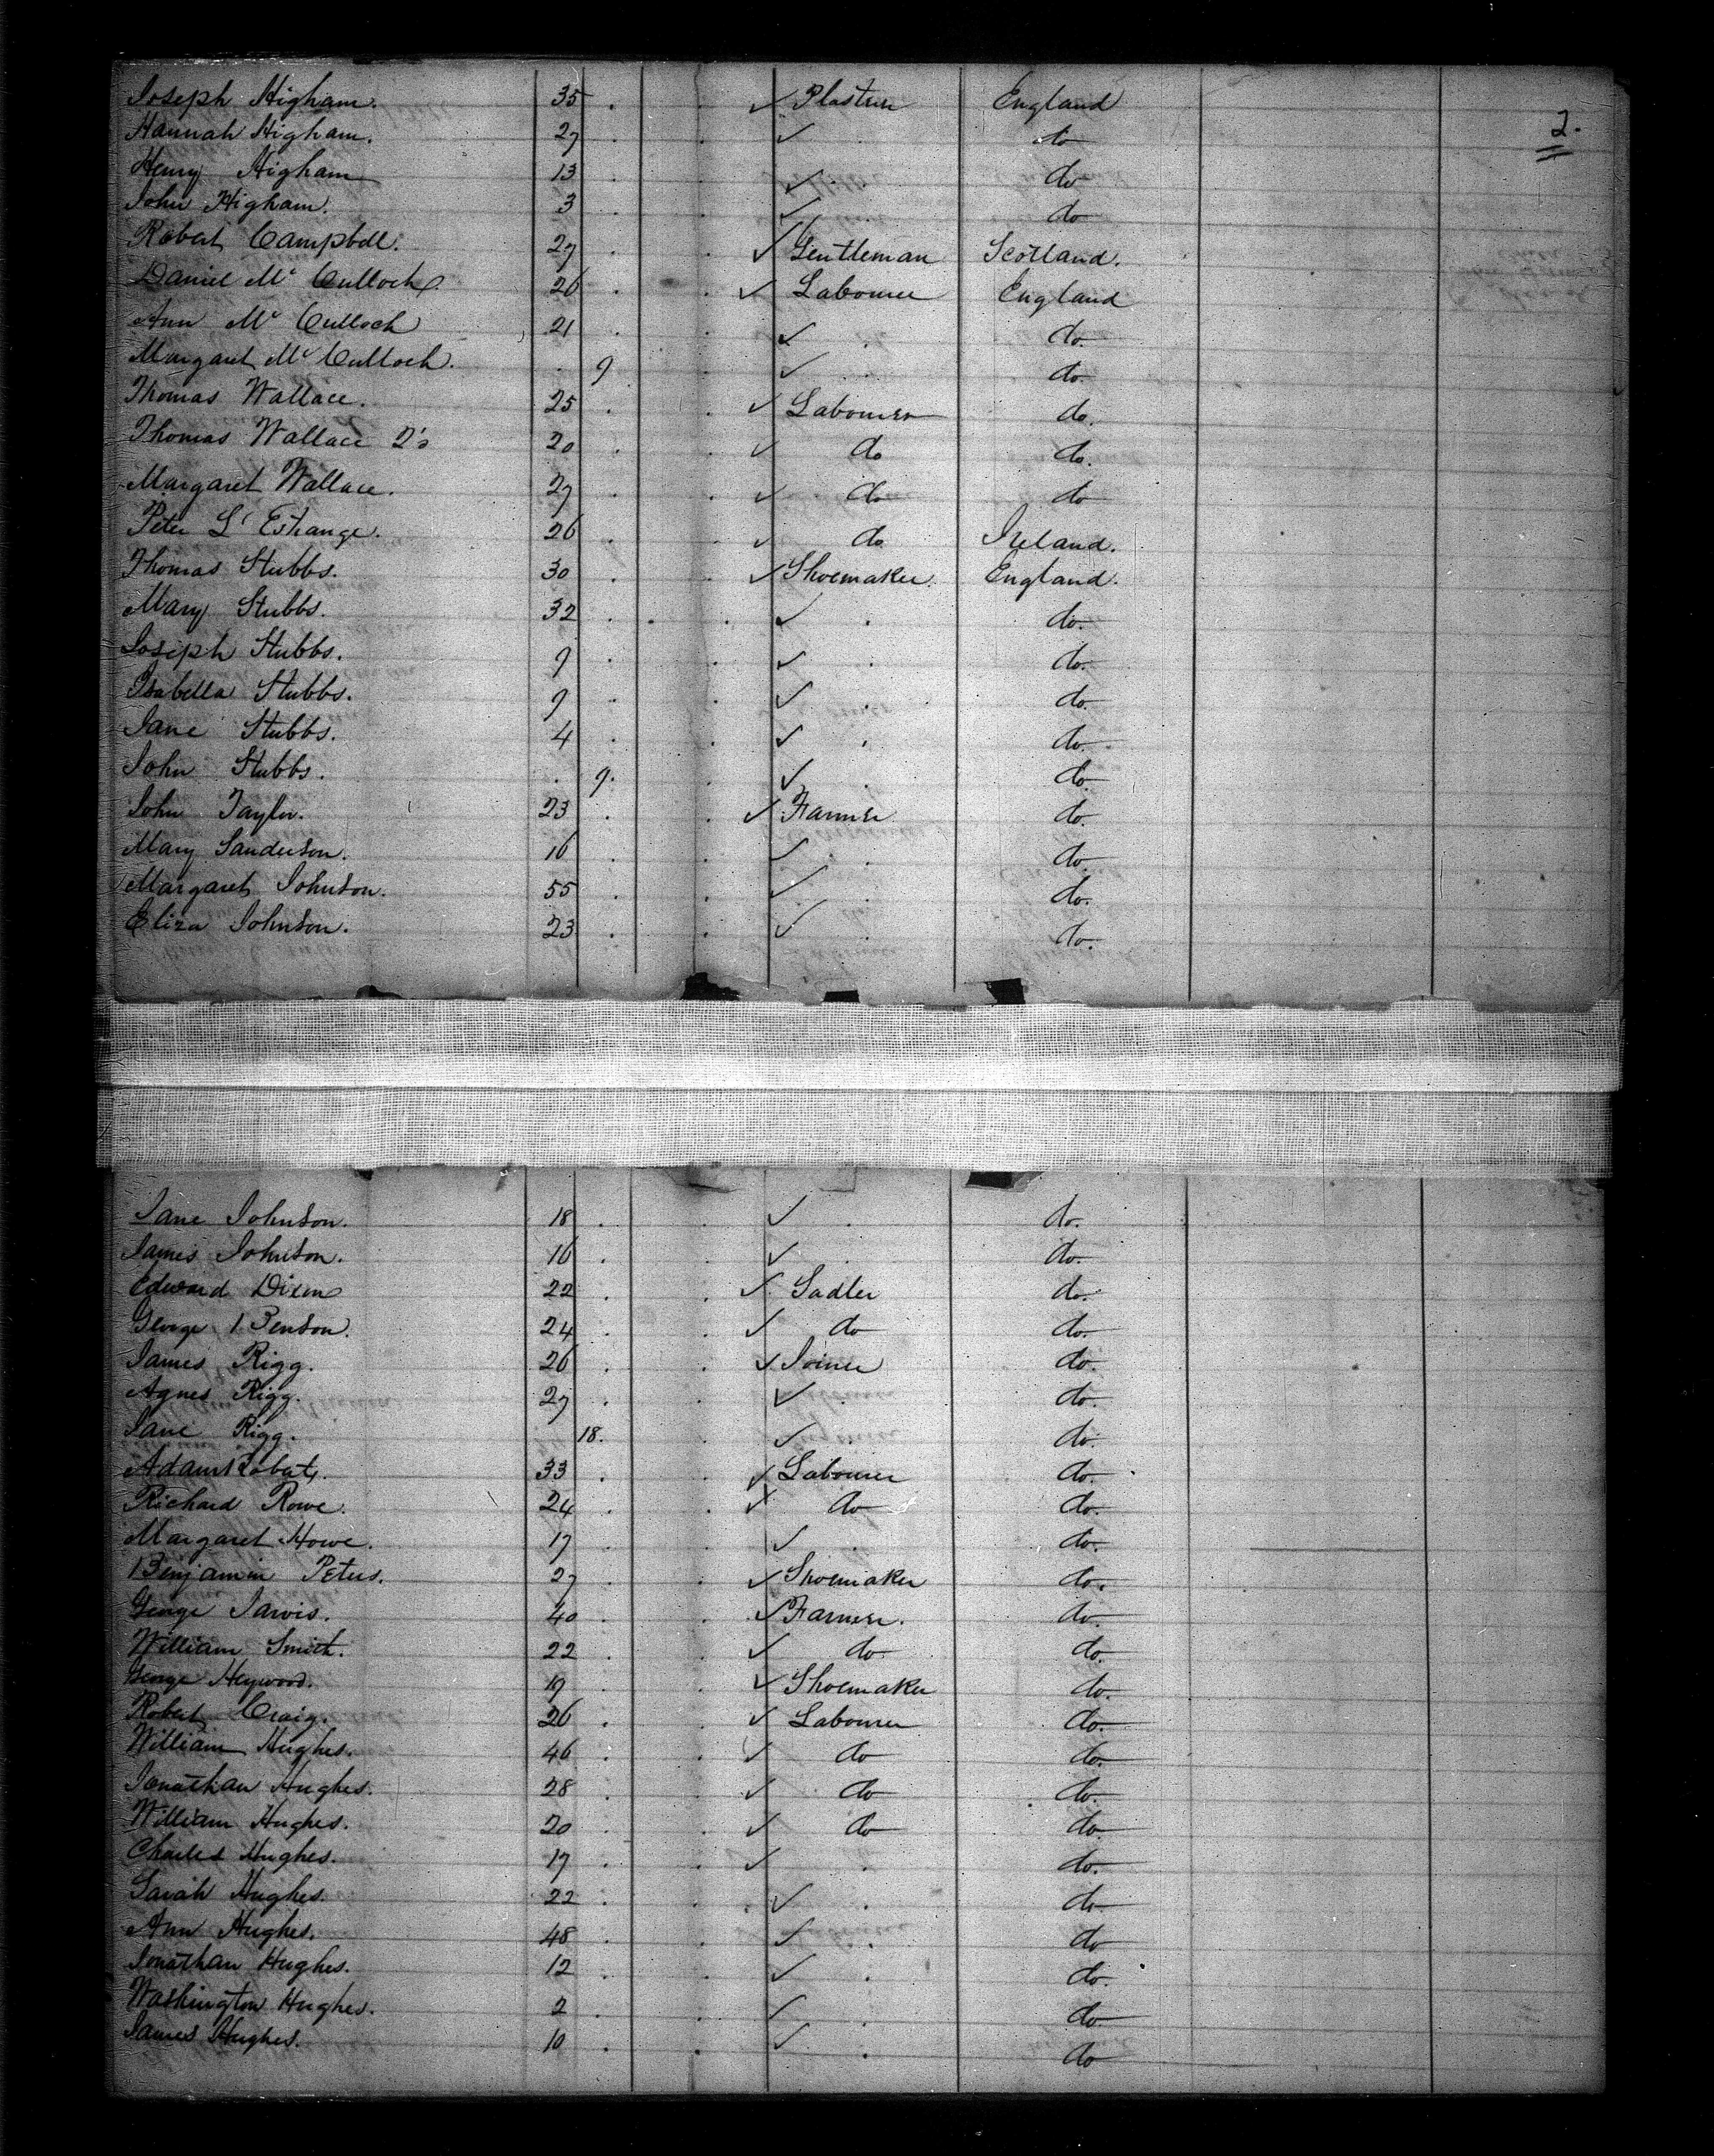 2.
Joseph Higham. 35 ✓ Plasterer England
Hannah Higham. 27 ✓ do
Henry Higham 13 ✓ do
John Higham. 3 ✓ do
Robert Campbell. 27 ✓ Gentleman Scotland.
Daniel Mc Culloch. 26 ✓ Labourer England
Ann Mc Culloch 21 ✓ do.
Margaret Mc Culloch. 9 ✓ do.
Thomas Wallace. 25 ✓ Labourer do.
Thomas Wallace 20 ✓ do do.
Margaret Wallace. 27 ✓ do do
Peter L'Estrange. 26 ✓ do Ireland.
Thomas Stubbs. 30 ✓ Shoemaker. England.
Mary Stubbs. 32 ✓ do.
Joseph Stubbs. 9 ✓ do.
Isabella Stubbs. 7 ✓ do.
Jane Stubbs. 4 ✓ do.
John Stubbs. 9. ✓ do.
John Taylor. 23 ✓ Farmer do.
Mary Sanderson. 16 ✓ do.
Margaret Johnson. 55 ✓ do.
Eliza Johnson. 23 ✓ do.
Jane Johnson. 18 ✓ do.
James Johnson. 16 ✓ do.
Edward Dixon 22 ✓ Sadler do.
George Benson. 24 ✓ do do.
James Rigg. 26 ✓ Joiner do.
Agnes Rigg. 27 ✓ do.
Jane Rigg. 18. ✓ do.
Adam Robert. 33 ✓ Labourer do.
Richard Rowe. 24 ✓ do do.
Margaret Howe. 17 ✓ do.
Benjamin Peters. 27 ✓ Shoemaker do.
George Jarvis. 40 ✓ Farmer. do.
William Smith. 22 ✓ do do.
George Heywood. 19 ✓ Shoemaker do.
Robert Craig. 26 ✓ Labourer do.
William Hughes. 46 ✓ do do.
Jonathan Hughes. 28 ✓ do do.
William Hughes. 20 ✓ do do.
Charles Hughes. 17 ✓ do.
Sarah Hughes. 22 ✓ do
Ann Hughes. 48 ✓ do
Jonathan Hughes. 12 ✓ do.
Washington Hughes. 2 ✓ do
James Hughes. 10 ✓ do